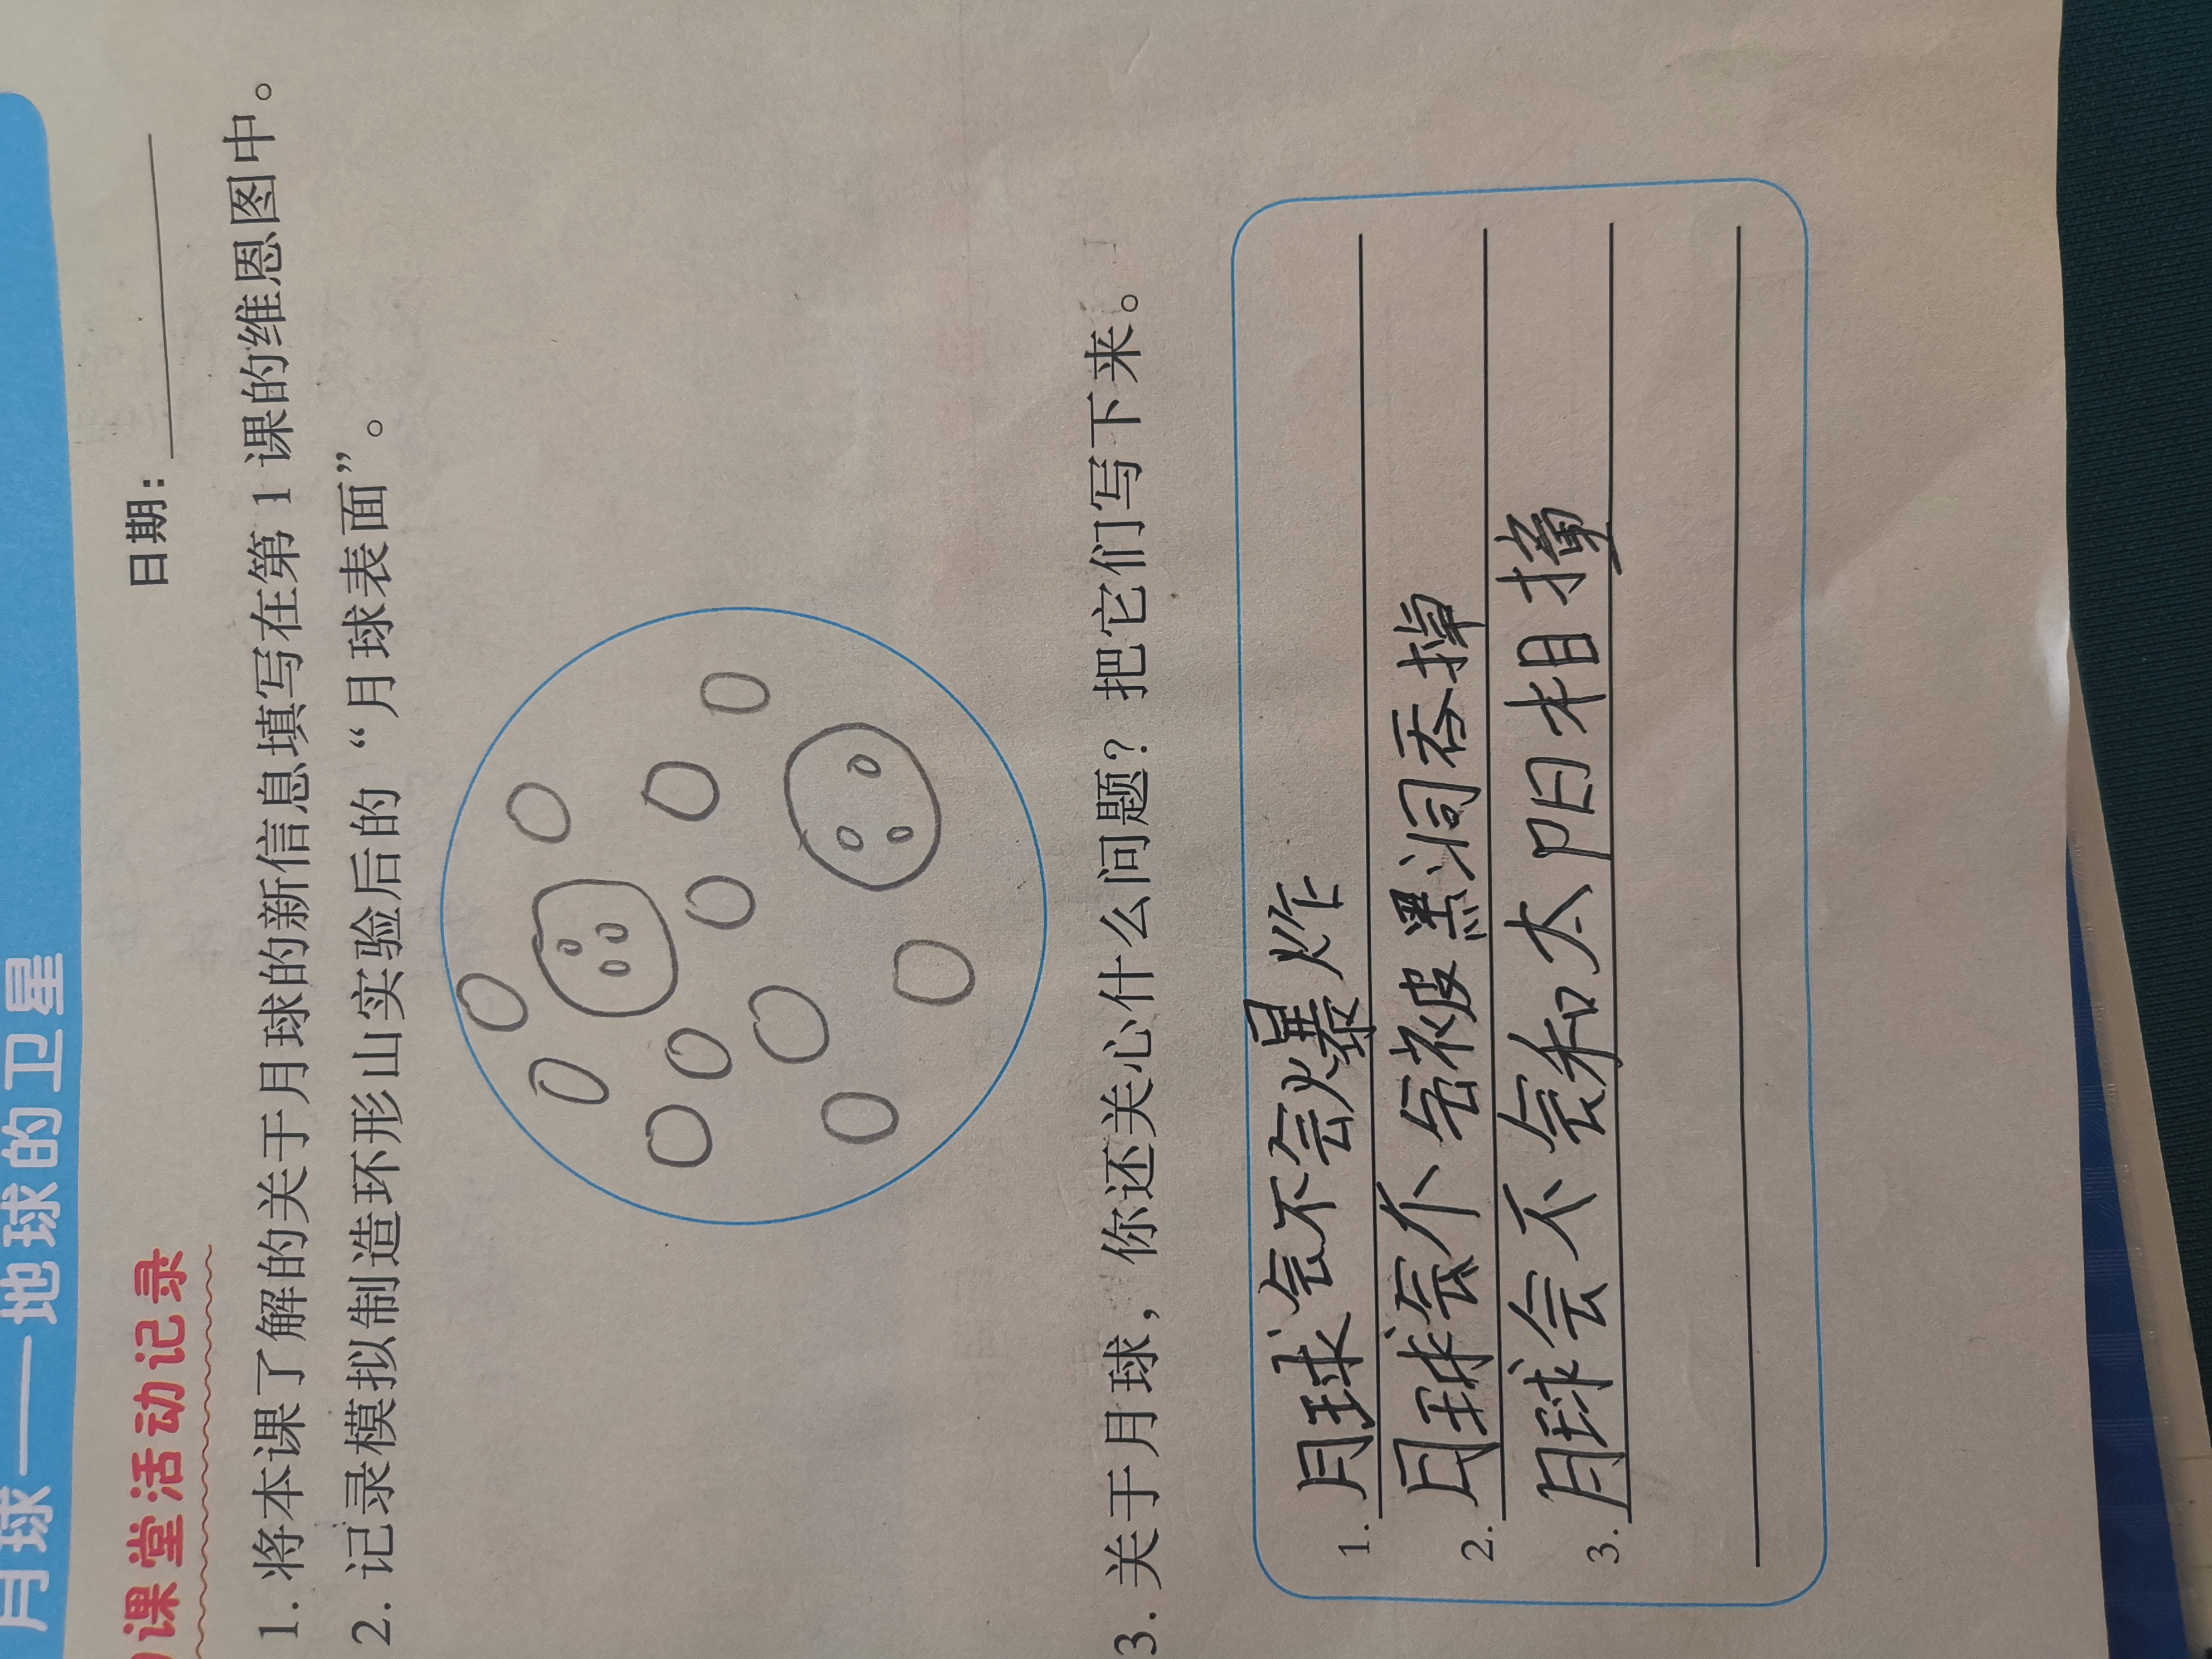 月球——地球的卫星
课堂活动记录
日期：
1. 将本课了解的关于月球的新信息填写在第 1 课的维恩图中。
2. 记录模拟制造环形山实验后的“月球表面”。
3. 关于月球，你还关心什么问题？把它们写下来。
1. 月球会不会爆炸
2. 月球会不会被黑洞吞掉
3. 月球会不会和太阳相撞